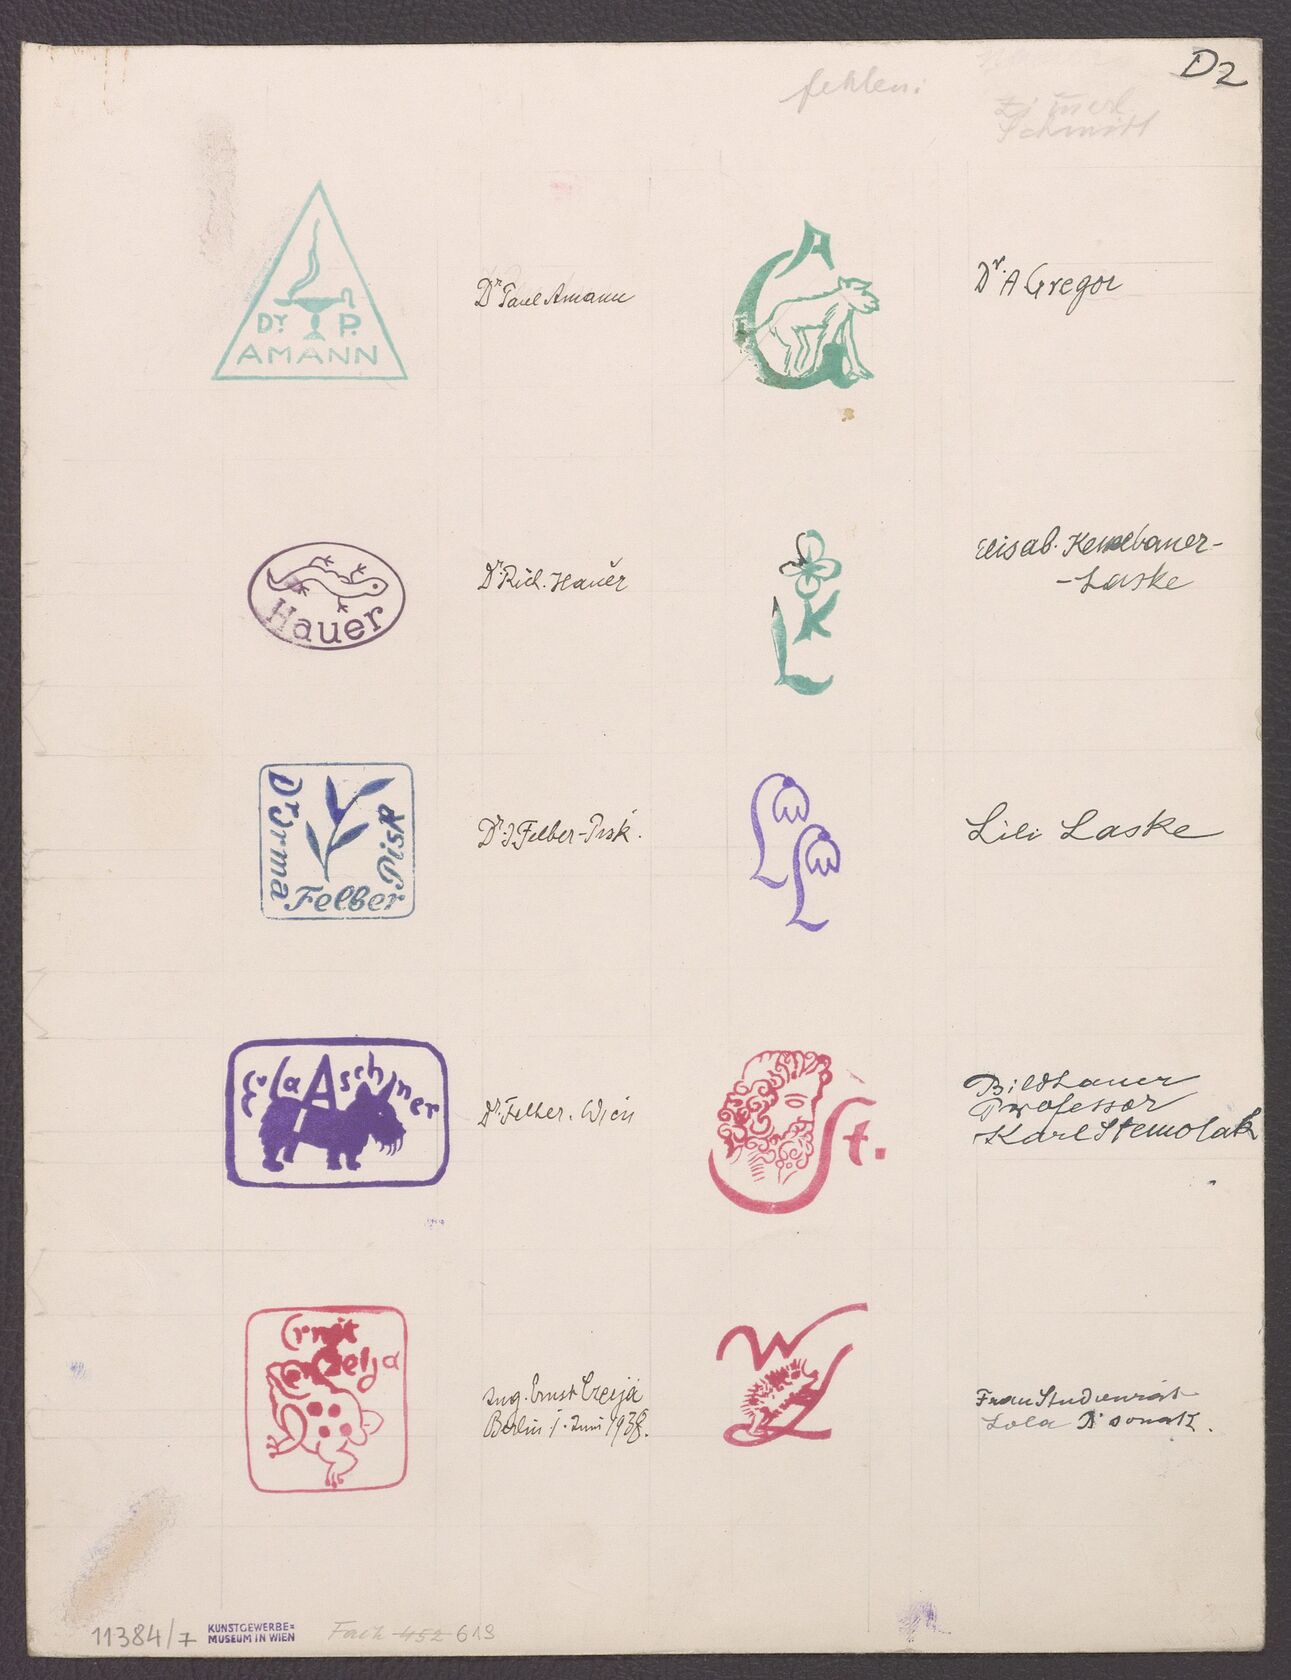 D2
fehlen:
Schmidt
Dr. P.
AMANN
Dr. Paul Amann
A
G
Dr. A Gregor
Hauer
Dr. Rich. Hauer
K
L
Elisab.
-Laske
Dr Irma
Felber
Pisk
Dr. J. Felber-Pisk.
L
L
Lili Laske
Eva Aschner
Dr. Felber. Wien
St.
Bildhauer
Professor
Karl Stemolak
Ernst
Czeija
Ing. Ernst Czeija
Berlin 1. Juni 1938.
W
L
Frau Studienrat
Lola
11384/7
KUNSTGEWERBE=
MUSEUM IN WIEN
Fach 452 613